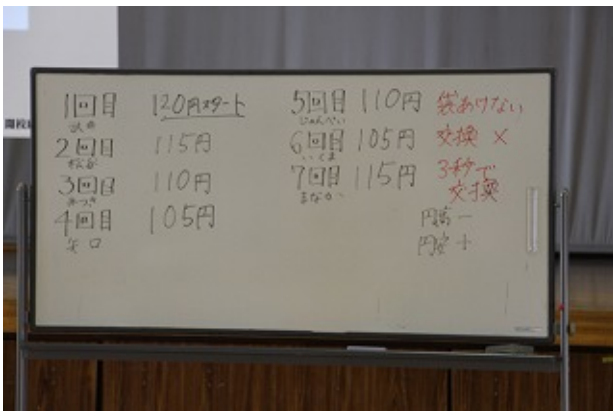 1回目 120円スタート
2回目 115円
松谷
3回目 110円
みづき
4回目 105円
矢口
5回目 110円
じゅんぺい
6回目 105円
いくま
7回目 115円
まなか
袋あけない
交換 ×
3秒で
交換
円高 −
円安 +